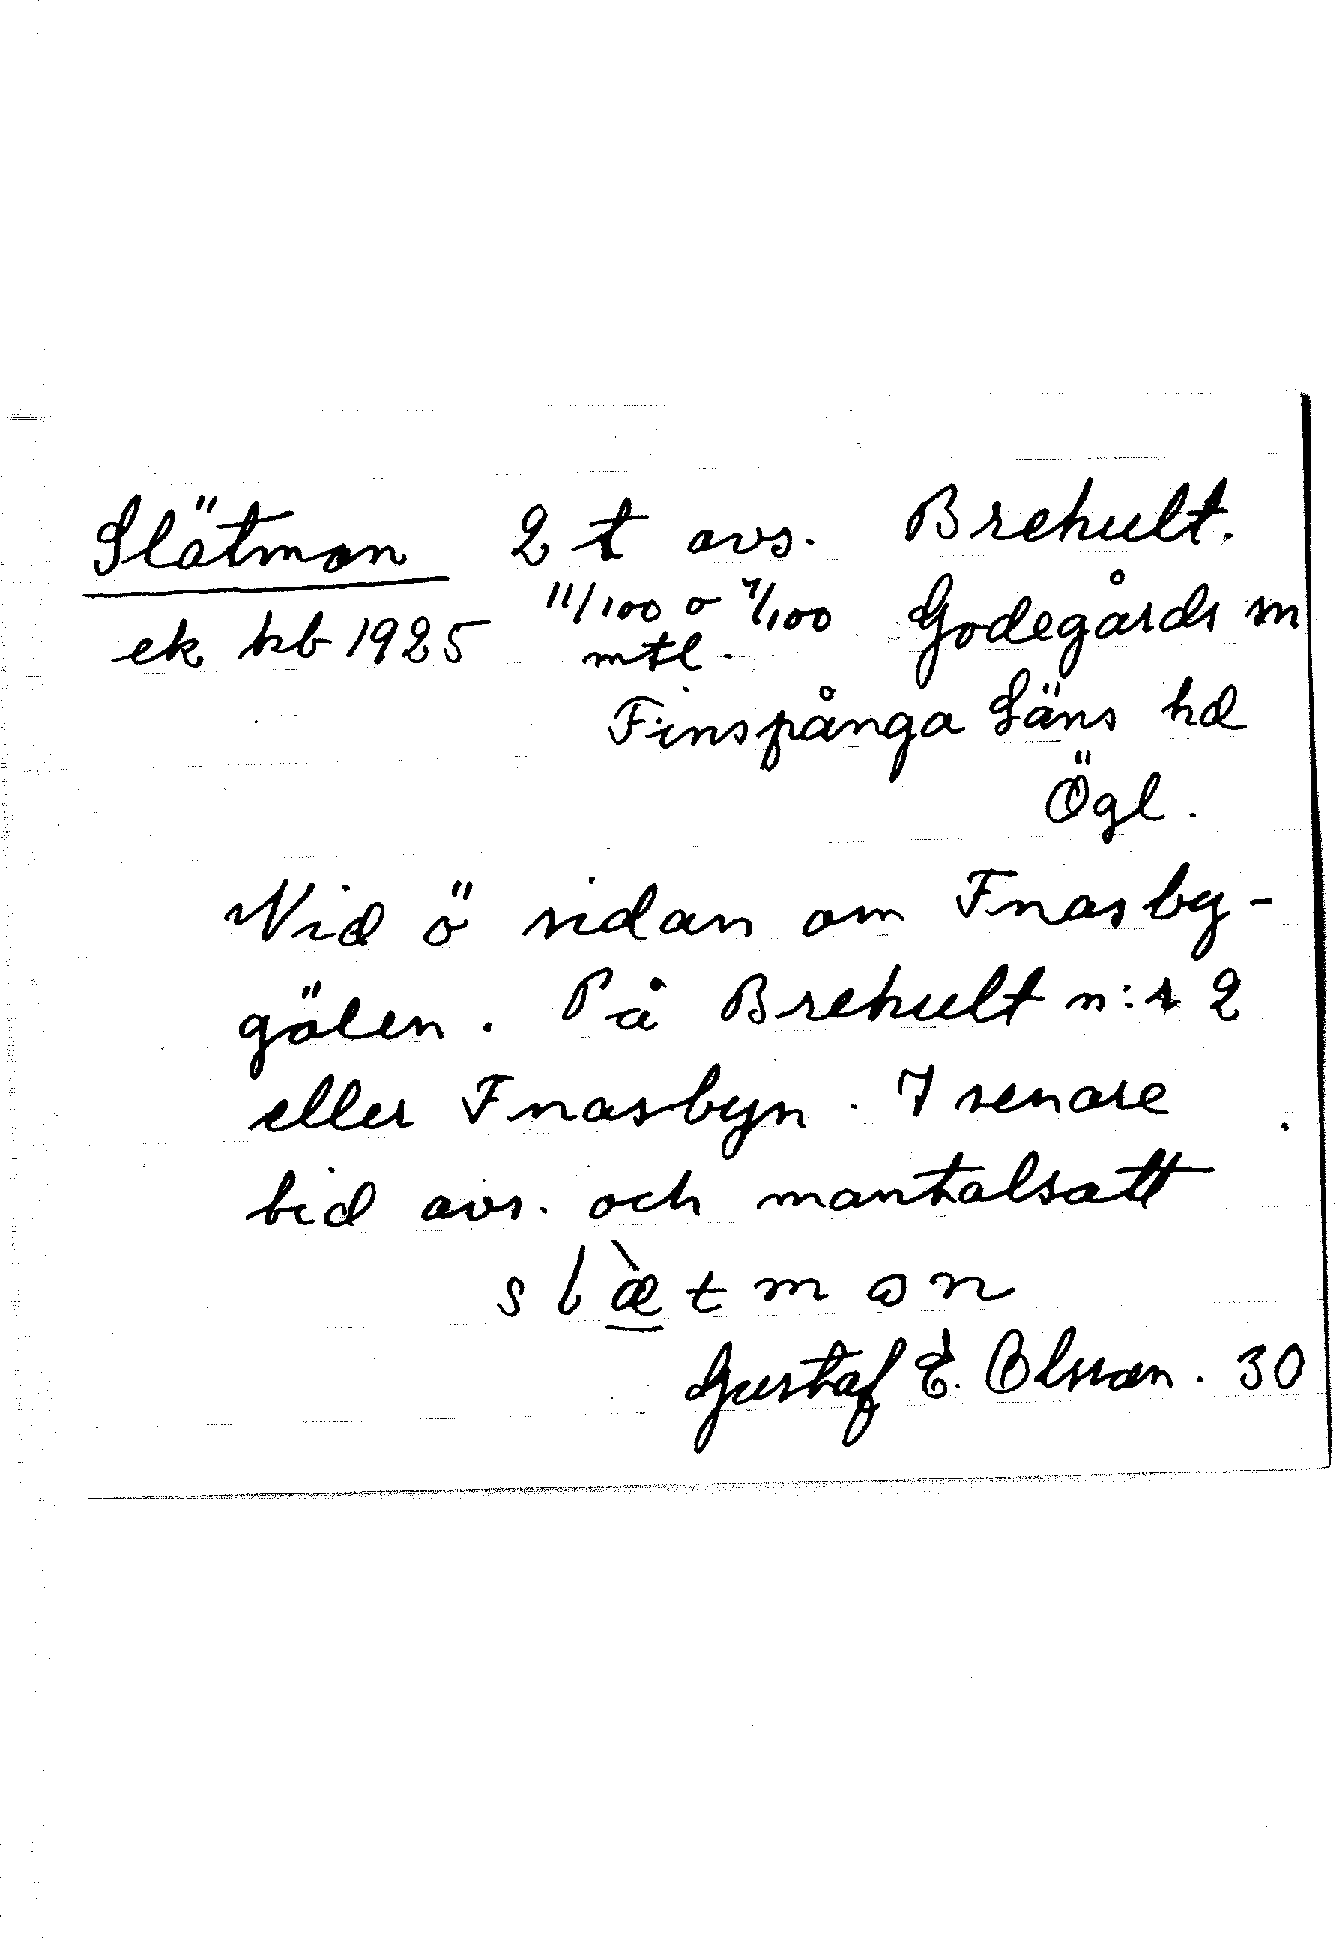 Slätmon 2 t avs. Brehult.
ek kb 1925 11/100 o 7/100 Godegårds sn
mtl.
Finspånga Läns hd
Ögl.
Vid ö sidan om Fnasby-
gölen. På Brehult n:r 2
eller Fnasbyn. I senare
tid avs. och mantalsatt
slæ̀tmon
Gustaf E. Olsson. 30